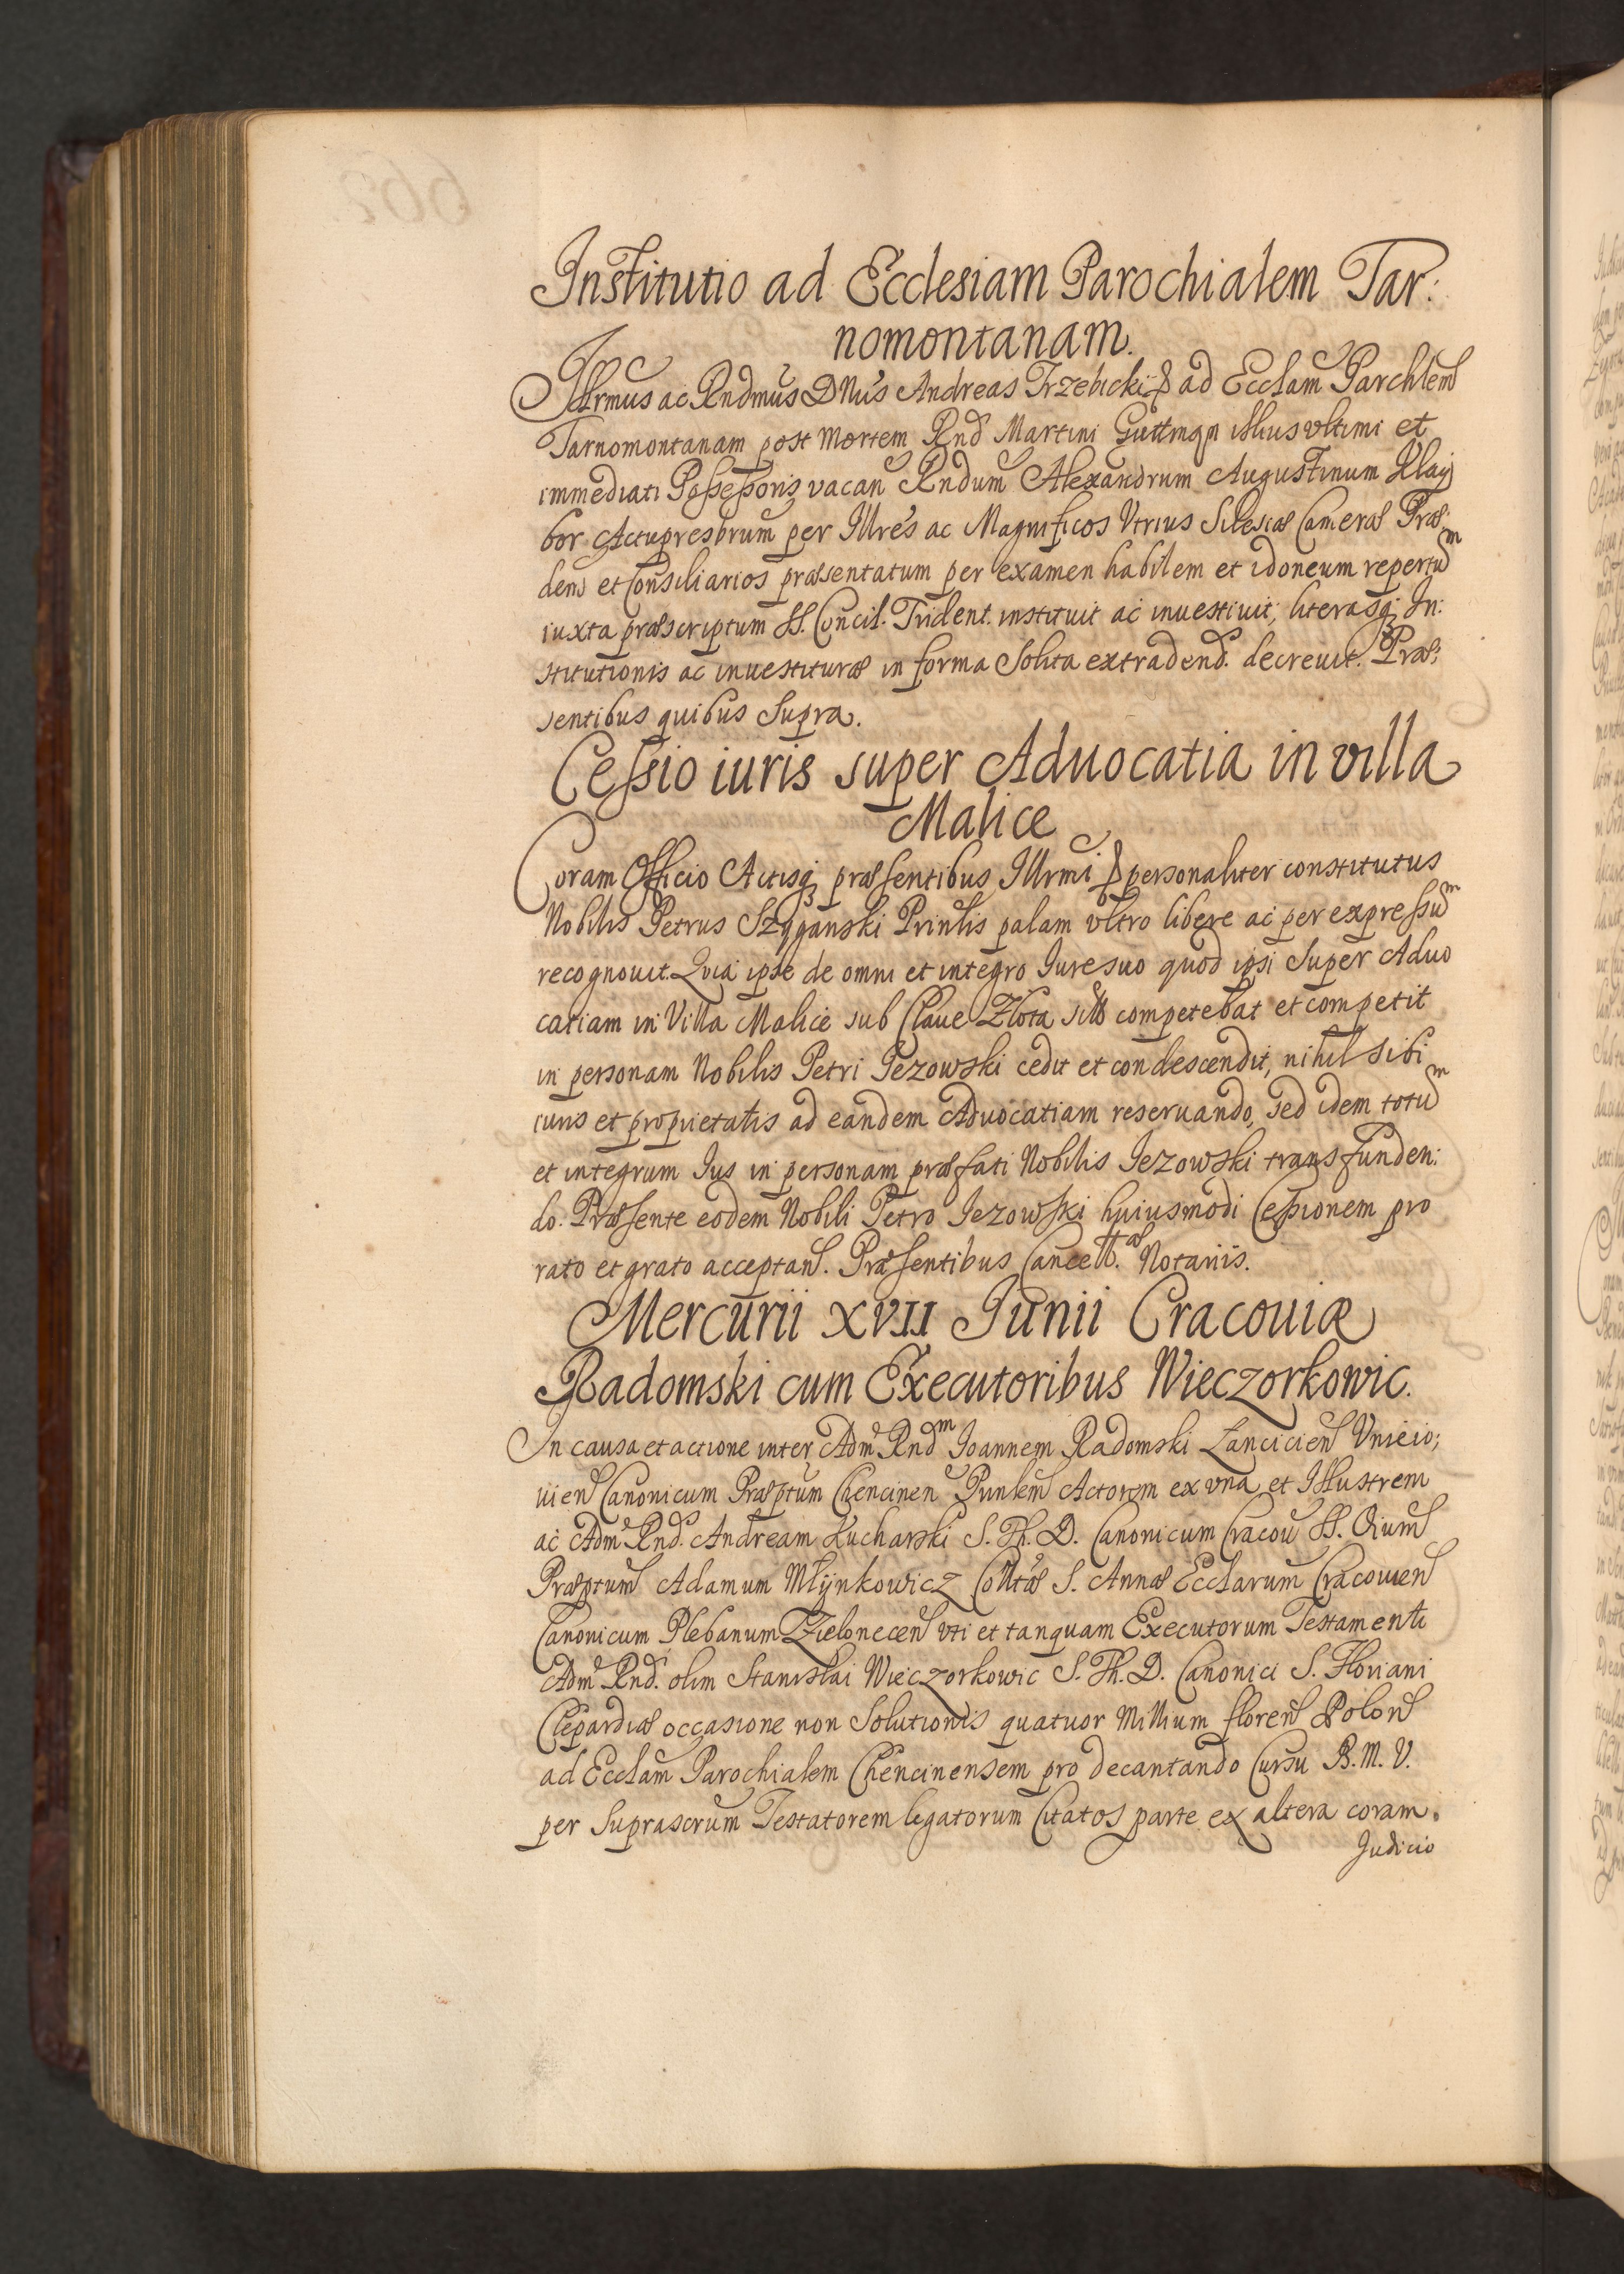 Institutio ad Ecclesiam Parochialem Tar:
nomontanam.
Illrmus ac Rndmus DNus Andreas Trzebicki ad Ecclam Parchlem
Tarnomontanam post mortem Rnd Martini illius vltimi et
immediati Possessoris vacan Rndum Alexandrum Augustinum Klay
bor Actupresbrum per Illres ac Magnificos Vtrius Silesiæ Cameræ Præ:
dem et Consiliarios præsentatum per examen habilem et idoneum repertum
iuxta præscriptum SS. Concil. Trident. instituit ac inuestiuit, literasq; In:
stitutionis ac inuestituræ in forma Solita extradend. decreuit. Præ:
sentibus quibus Supra.
Cessio iuris super Aduocatia in villa
Malice
Coram Officio Actisq; præsentibus Illrmi personaliter constitutus
Nobilis Petrus Szyganski Prinlis palam vltro libere ac per expressum
recognouit. Quia ipse de omni et integro Iure suo quod ipsi Super Aduo
catiam in Villa Malice sub Claue Złota competebat et competit
in personam Nobilis Petri Jezowski cedit et condescendit, nihil sibi
iuris et proprietatis ad eandem Aduocatiam reseruando, sed idem totum
et integrum Ius in personam præfati Nobilis Jezowski transfunden:
do. Præsente eodem Nobili Petro Jezowski huiusmodi Cessionem pro
rato et grato acceptan. Præsentibus Cancell.æ Notariis.
Mercurii XVII Junii Cracouiæ
Radomski cum Executoribus Wieczorkowic.
In causa et actione inter Adm Rndm Joannem Radomski Lancicien Vnieio;
uien Canonicum Præptum Chencinen Punlem Actorem ex vna et Illustrem
ac Adm Rnd. Andream Kucharski S. Th. D. Canonicum Cracou SS. Oium
Præptum Adamum Młynkowicz Colltæ S. Annæ Ecclarum Cracouien
Canonicum Plebanum Zielonecen vti et tanquam Executorum Testamenti
Adm Rnd. olim Stanislai Wieczorkowic S. Th. D. Canonici S. Floriani
Clepardiæ occasione non Solutionis quatuor Millium floren Polon
ad Ecclam Parochialem Chencinensem pro decantando Cursu B. M. V.
per Suprascrum Testatorem legatorum Citatos parte ex altera coram.
Judicio